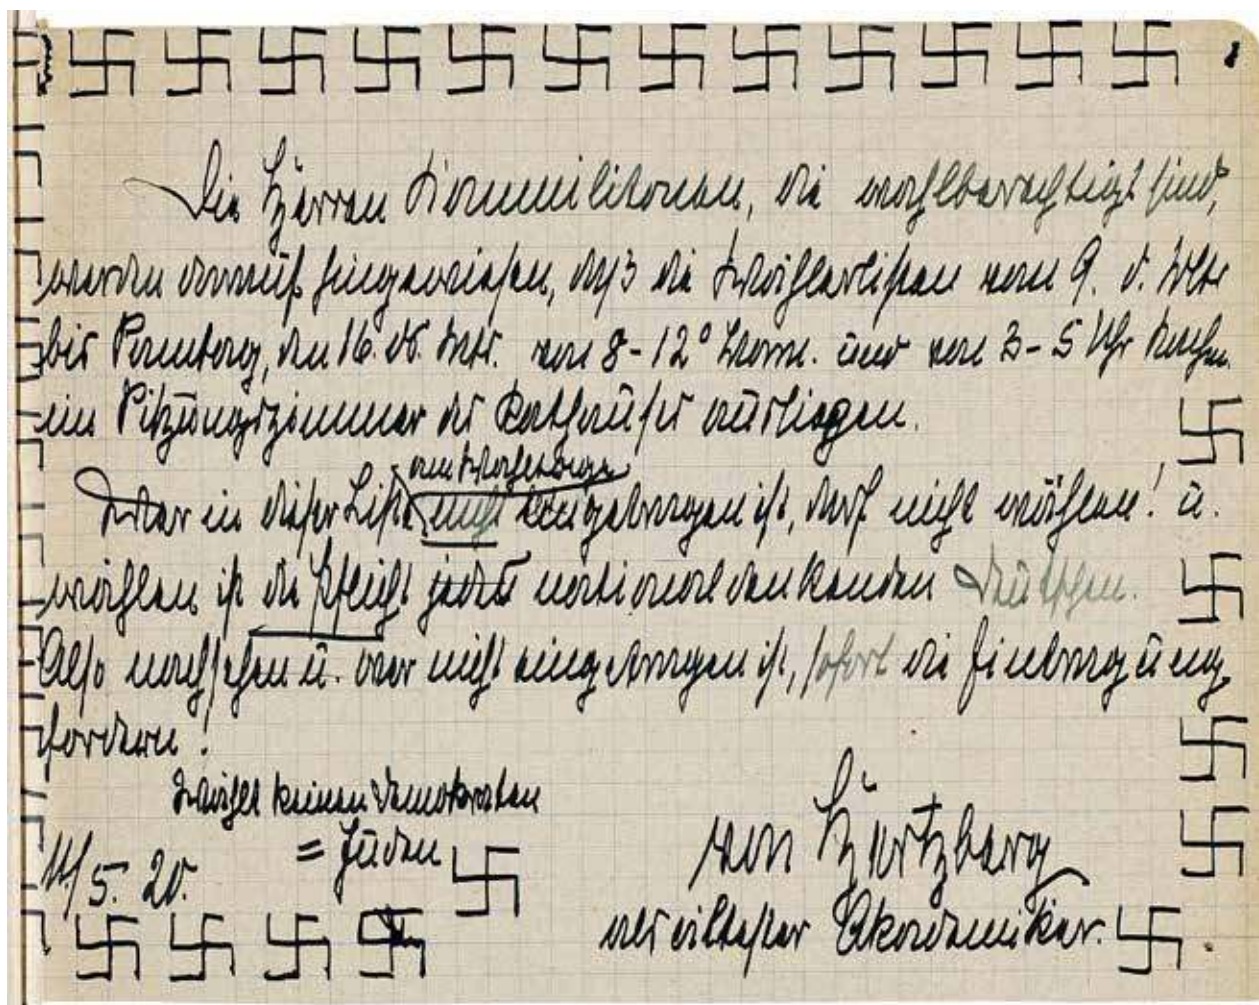 Die Herren Kommilitonen, die wahlberechtigt sind,
werden darauf hingewiesen, daß die Wählerlisten vom 9. d. Mts
bis Sonntag, den 16. ds. Mts. von 8-12° Vorm. und von 3-5 Uhr Nachm.
im Sitzungszimmer des Rathauses ausliegen.
am Wahltage
Wer in dieser Liste nicht eingetragen ist, darf nicht wählen! u.
wählen ist die Pflicht jedes national denkenden Deutschen.
Also nachsehen u. wer nicht eingetragen ist, sofort die Eintragung
fordern!
Wählt keinen Demokraten
= Juden
11/5. 20.
von Hertzberg
als ältester Akademiker.